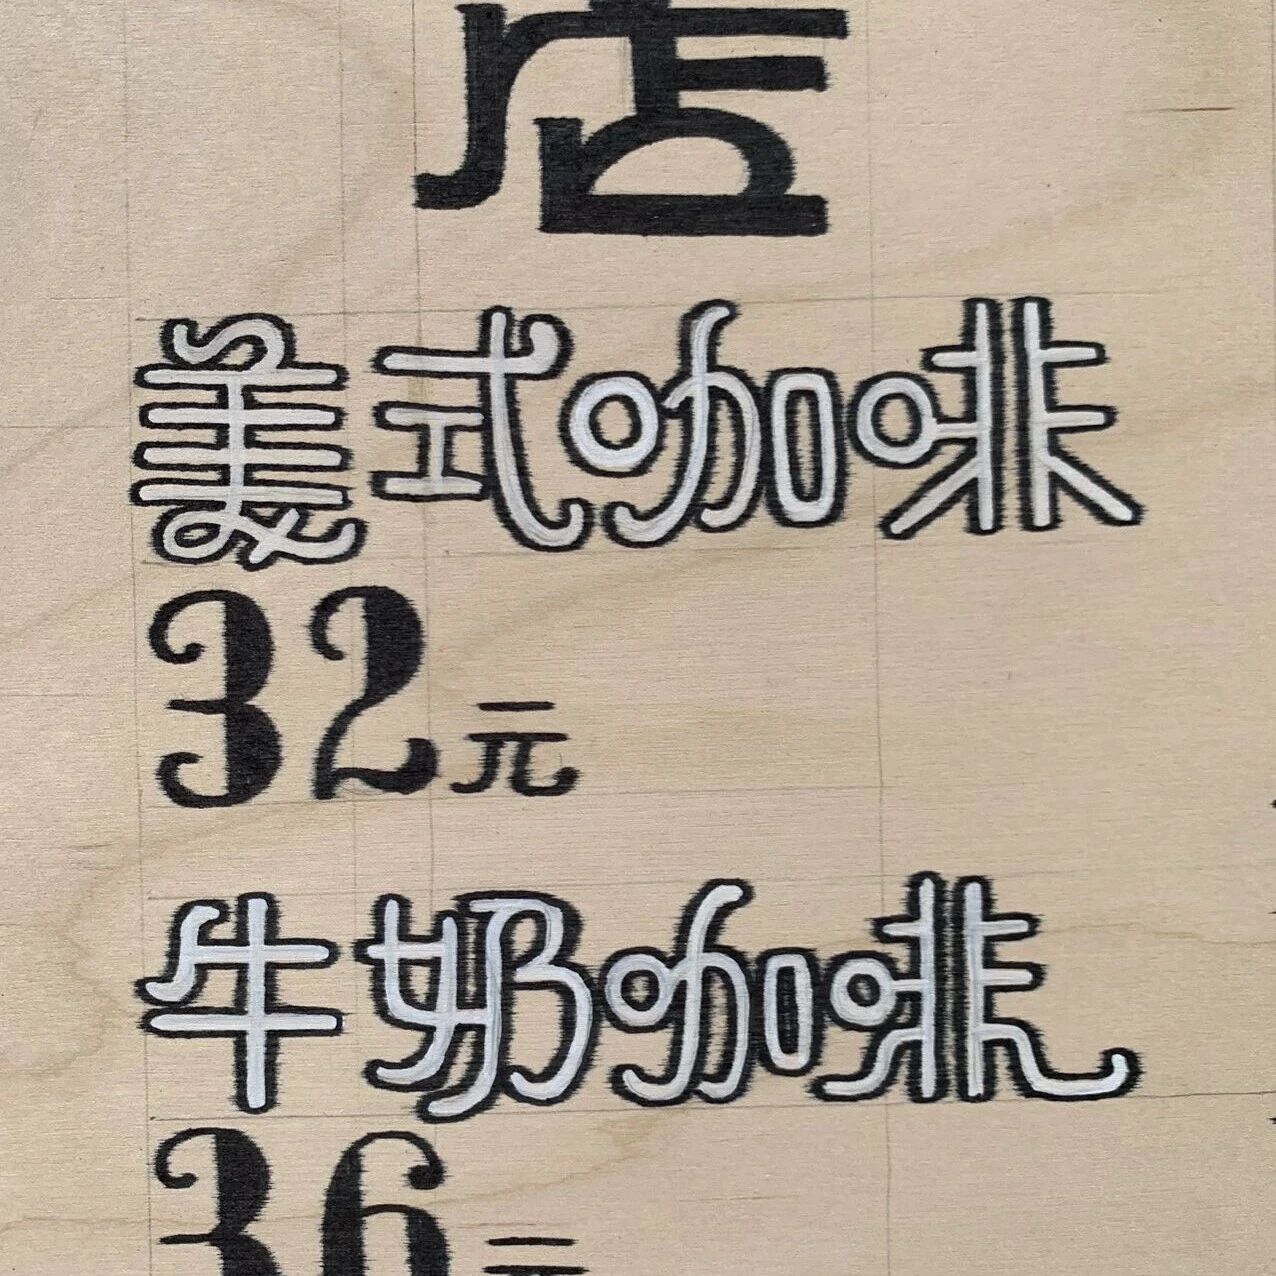 店
美式咖啡
32元
牛奶咖啡
36元